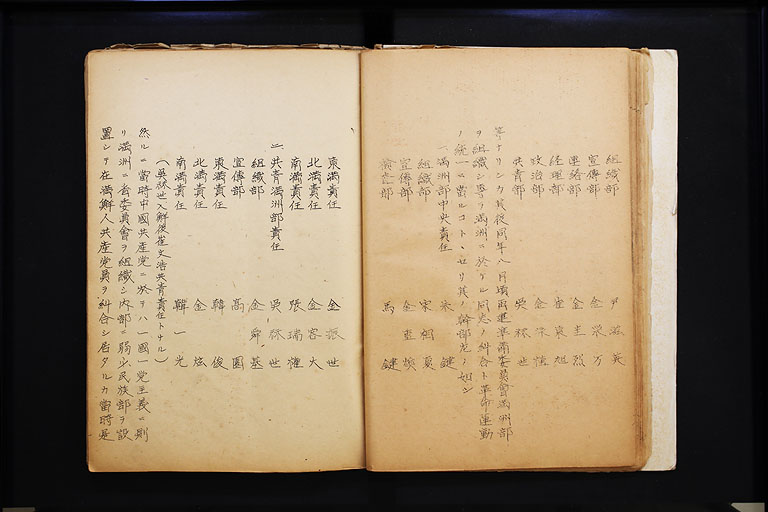 組織部 尹滋英
宣傳部 金榮万
連絡部 金圭烈
經理部 崔東旭
政治部 金 慎
共青部 吳林世
等ナリシカ其後同年八月頃再建準備委員會滿洲部
ヲ組織シ專ラ滿洲ニ於ケル同志ノ糾合ト革命運動
ノ統一ニ當ルコトトセリ其ノ幹部左ノ如シ
一、滿洲部中央責任 朱 鍵
組織部 宋絅夏
宣傳部 金
部 馬 鍵
東滿責任 金振世
北滿責任 金容大
南滿責任 張瑞權
二、共青滿洲部責任 吳林世
組織部 金舜基
宣傳部 高 園
東滿責任 韓 俊
北滿責任 金 炫
南滿責任 韓一光
(吳林世入鮮後崔文浩共青責任トナル)
然ルニ當時中國共產党ニ於ヲハ一國一党主義ニ則
リ滿洲ニ省委員會ヲ組織シ內部ニ弱少民族部ヲ設
置シテ在滿鮮人共產党員ヲ糾合シ居タルカ當時是